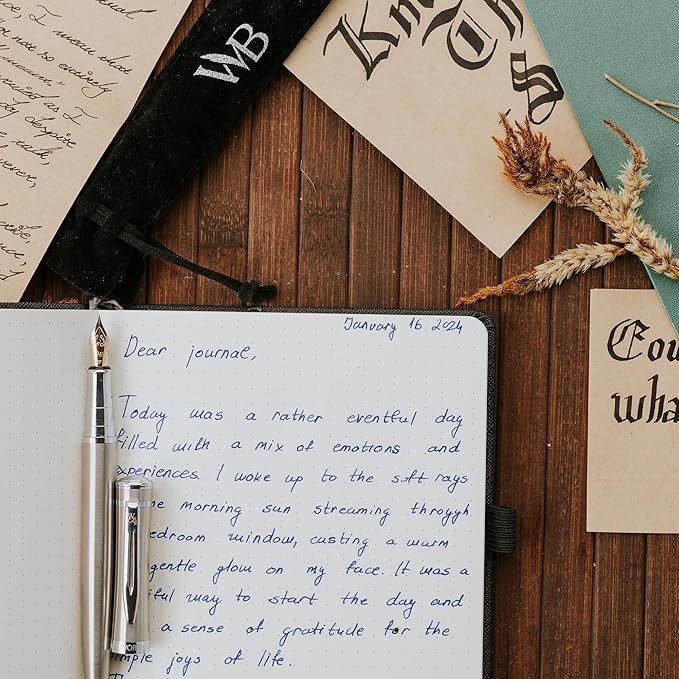 I mean what
not so entirely
as I
day despite
WB
Kn
Tho
s
Cou
wha
January 16 2024
Dear journal,
Today was a rather eventful day
filled with a mix of emotions and
experiences. I woke up to the soft rays
he morning sun streaming throygh
edroom window, casting a warm
gentle glow on my face. It was a
iful way to start the day and
a sense of gratitude for the
mple joys of life.